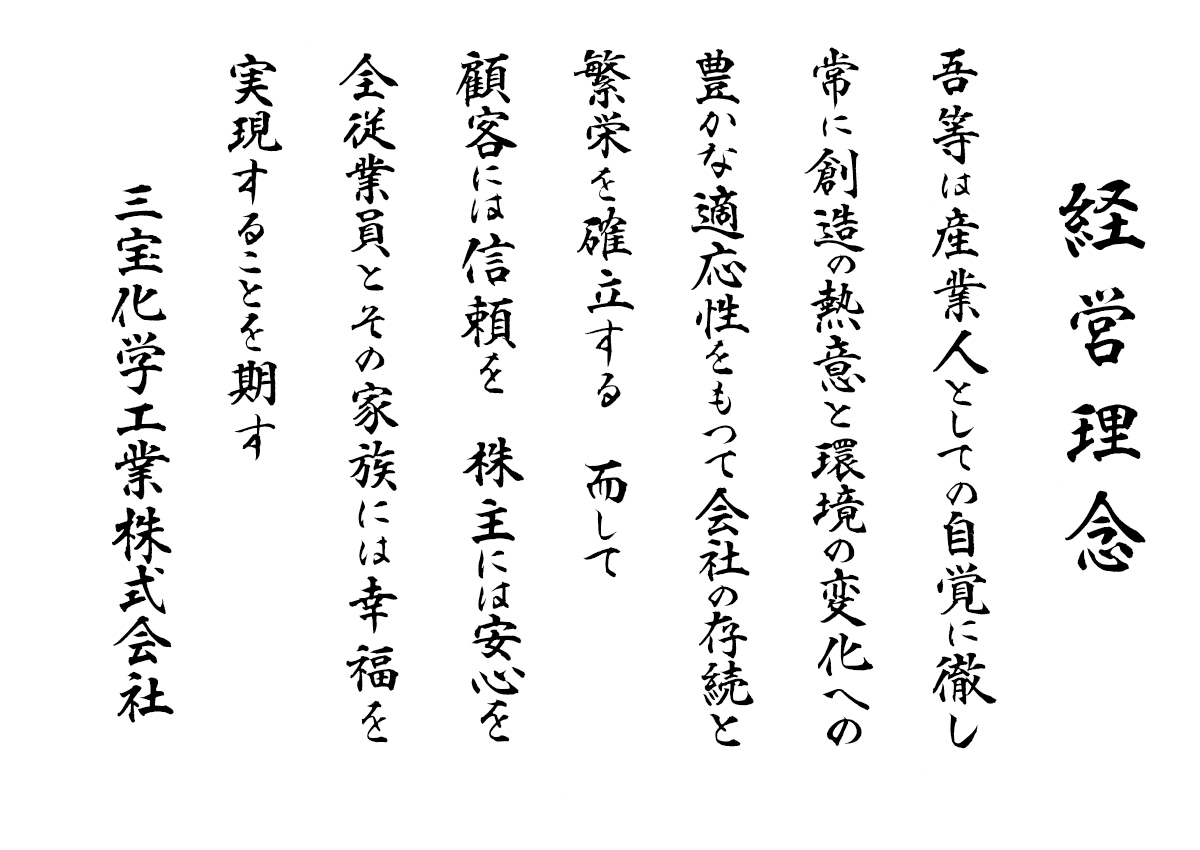 経営理念
吾等は産業人としての自覚に徹し
常に創造の熱意と環境の変化への
豊かな適応性をもつて会社の存続と
繁栄を確立する　而して
顧客には信頼を　株主には安心を
全従業員とその家族には幸福を
実現することを期す
三宝化学工業株式会社